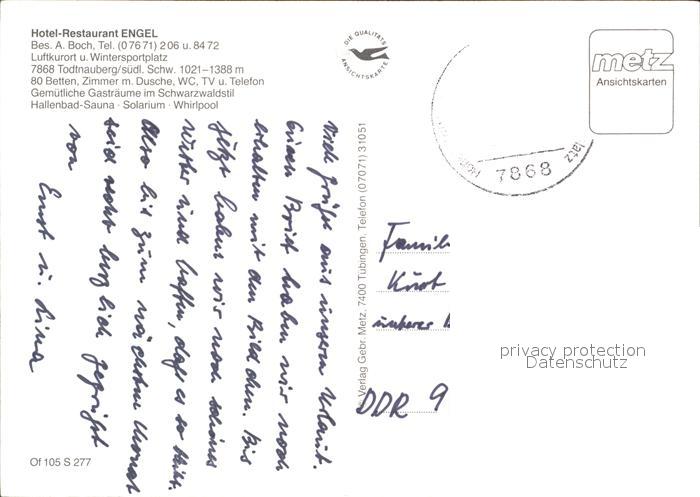 Hotel-Restaurant ENGEL
Bes. A. Boch, Tel. (0 76 71) 2 06 u. 84 72
Luftkurort u. Wintersportplatz
7868 Todtnauberg/südl. Schw. 1021–1388 m
80 Betten, Zimmer m. Dusche, WC, TV u. Telefon
Gemütliche Gasträume im Schwarzwaldstil
Hallenbad-Sauna · Solarium · Whirlpool
DIE QUALITÄTS
ANSICHTSKARTE
metz
Ansichtskarten
7868
latz
Viele Grüße aus unserm Urlaub.
Euren Brief haben wir noch
erhalten mit den Bildchen. Bis
jetzt haben wir noch schönes
Wetter und hoffen, daß es so bleibt.
Also bis zum nächsten Monat
seid recht herzlich gegrüßt
von
Ernst u. Lina
© Verlag Gebr. Metz, 7400 Tübingen, Telefon (0 70 71) 3 10 51
Famili
Kurt
unterer
DDR 9
privacy protection
Datenschutz
Of 105 S 277